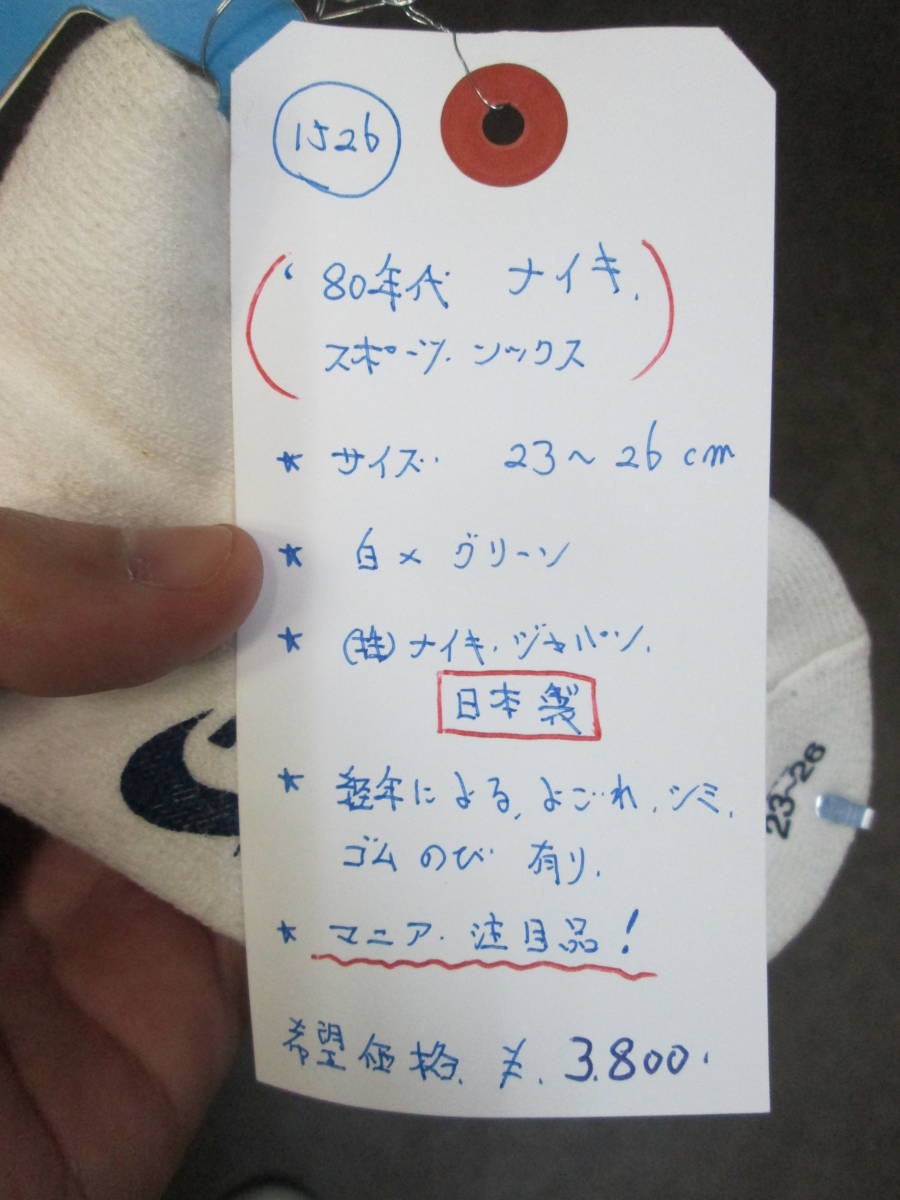 1526
'80年代 ナイキ.
スポーツ. ソックス
★ サイズ. 23〜26cm
★ 白×グリーン
★ (株)ナイキ.ジャパン.
日本製
★ 経年による,よごれ,シミ,
ゴムのび 有り.
★ マニア.注目品!
希望価格. ¥. 3.800.
23〜26